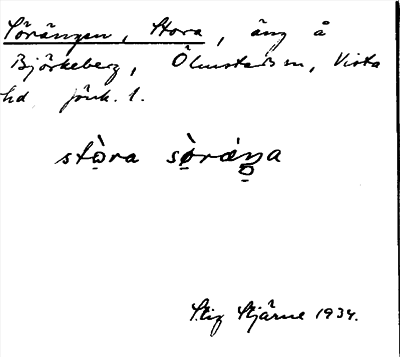 Sörängen, Stora, äng å
Björkeberg, Ölmstad sn, Vista
hd jönk. l.
stò̱ra sö̀räŋa
Stig Stjärne 1934.